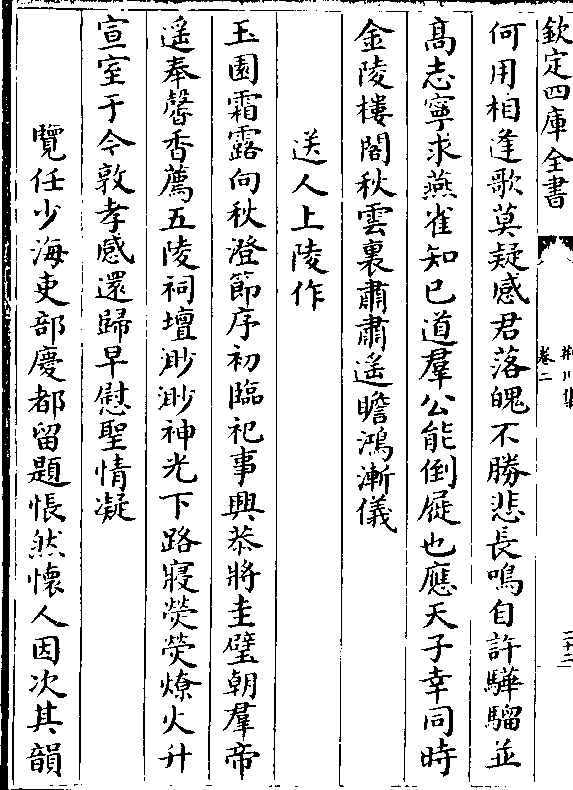 欽定四庫全書
荊川集
卷二
二十二
何用相逢歌莫疑感君落魄不勝悲長鳴自許驊騮並
高志寧求燕雀知已道羣公能倒屣也應天子幸同時
金陵樓閣秋雲裏肅肅遥瞻鴻漸儀
送人上陵作
玉園霜露向秋澄節序初臨祀事興恭將圭璧朝羣帝
遥奉馨香薦五陵祠壇渺渺神光下路寢熒熒燎火升
宣室于今敦孝感還歸早慰聖情凝
覽任少海吏部慶都留題悵然懷人因次其韻